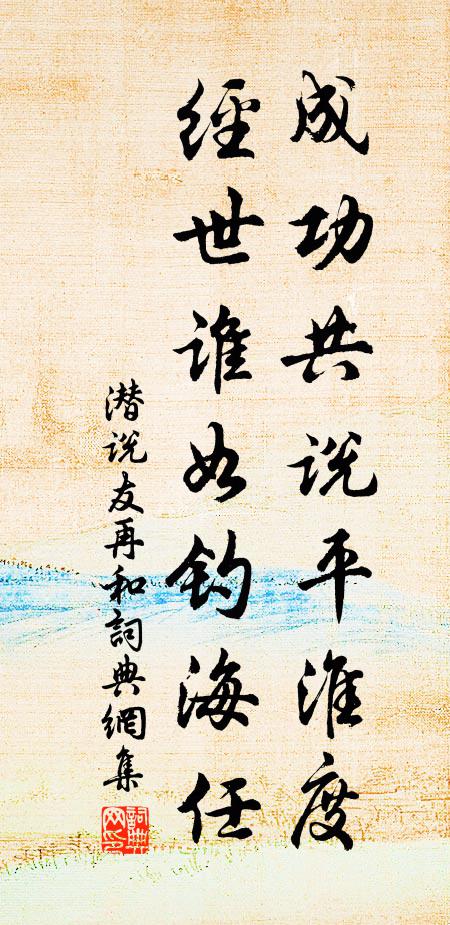 成功共说平淮度
經世谁如钓海任
潜说友再和詞典網集
詞典网印